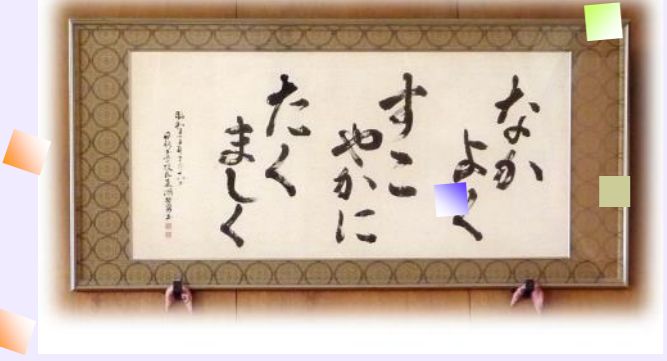 なか
よく
すこ
やかに
たく
ましく